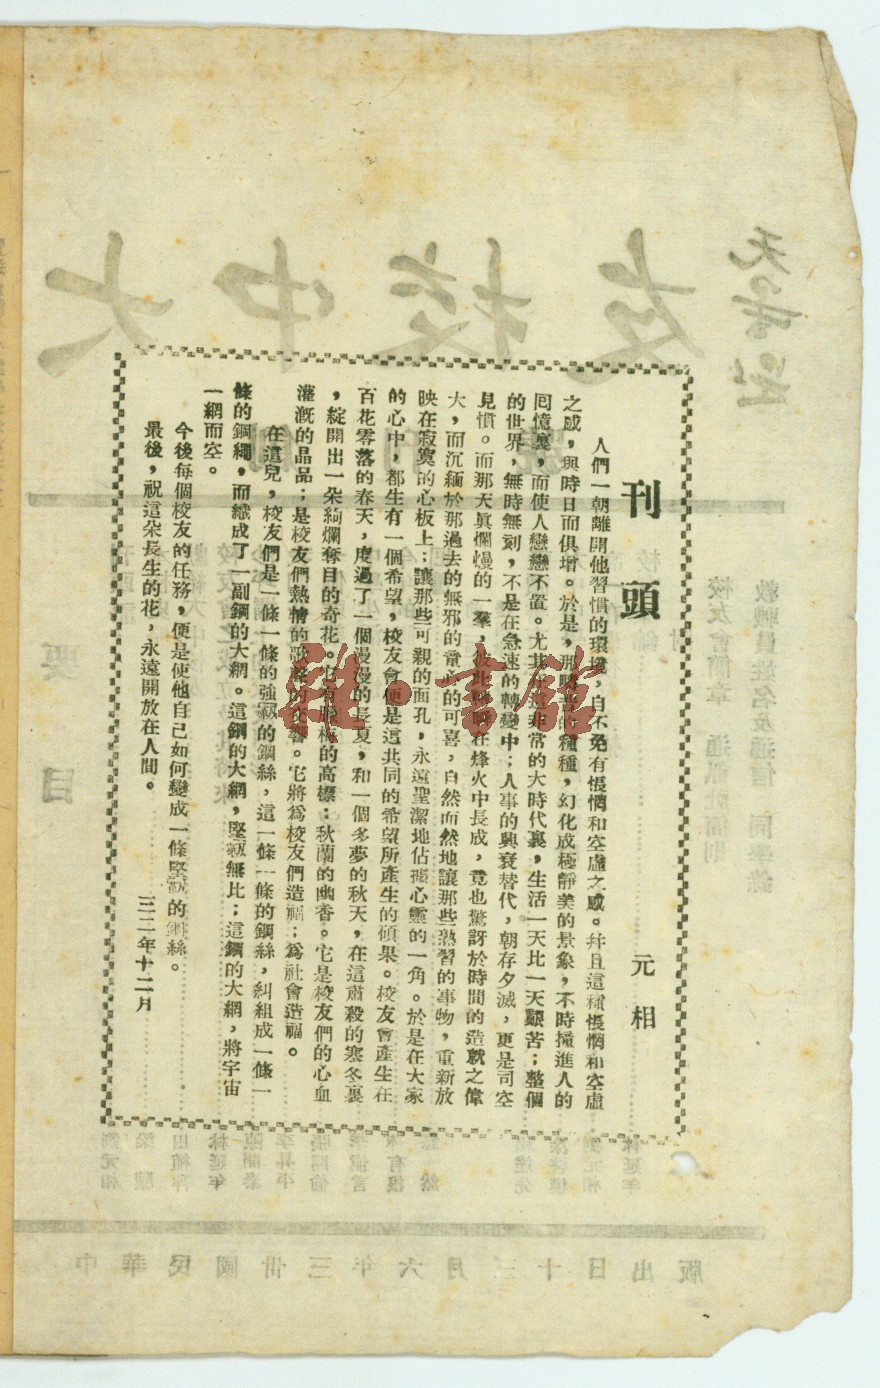 刊頭
元相
人們一朝離開他習慣的環境，自不免有悵惘和空虛之感。幷且這種悵惘和空虛
之感，與時日而俱增。於是，那疇昔的種種，幻化成極靜美的景象，不時撞進人的
囘憶裏，而使人戀戀不置。尤其在這非常的大時代裏，生活一天比一天艱苦；整個
的世界，無時無刻，不是在急速的轉變中；人事的興衰替代，朝存夕滅，更是司空
見慣。而那天眞爛慢的一羣，彼此在烽火中長成，竟也驚訝於時間的造就之偉
大，而沉緬於那過去的無邪的童心的可喜，自然而然地讓那些熟習的事物，重新放
映在寂寞的心板上；讓那些可親的面孔，永遠聖潔地佔據心靈的一角。於是在大家
的心中，都生有一個希望，校友會便是這共同的希望所產生的碩果。校友會產生在
百花零落的春天，度過了一個漫漫的長夏，和一個多夢的秋天，在這肅殺的寒冬裏
，綻開出一朵絢爛奪目的奇花。它有臘梅的高標；秋蘭的幽香。它是校友們的心血
灌漑的晶品；是校友們熱情的歌聲的交響。它將爲校友們造福；爲社會造福。
在這兒，校友們是一條一條的強韌的鋼絲，這一條一條的鋼絲，糾組成一條一
條的鋼繩，而織成了一副鋼的大網。這鋼的大網，堅韌無比；這鋼的大網，將宇宙
一網而空。
今後每個校友的任務，便是使他自己如何變成一條堅韌的鋼絲。
最後，祝這朵長生的花，永遠開放在人間。
三二年十二月
雜·書館